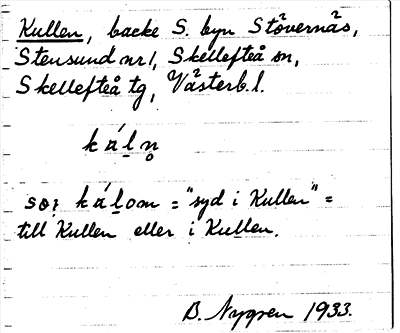 Kullen, backe S. byn Stövernäs,
Stensund nr 1, Skellefteå sn,
Skellefteå tg, Västerb. l.
ká̤ḻn̥
sor ká̤ḻom = "syd i Kullen" =
till Kullen eller i Kullen.
B. Nygren 1933.